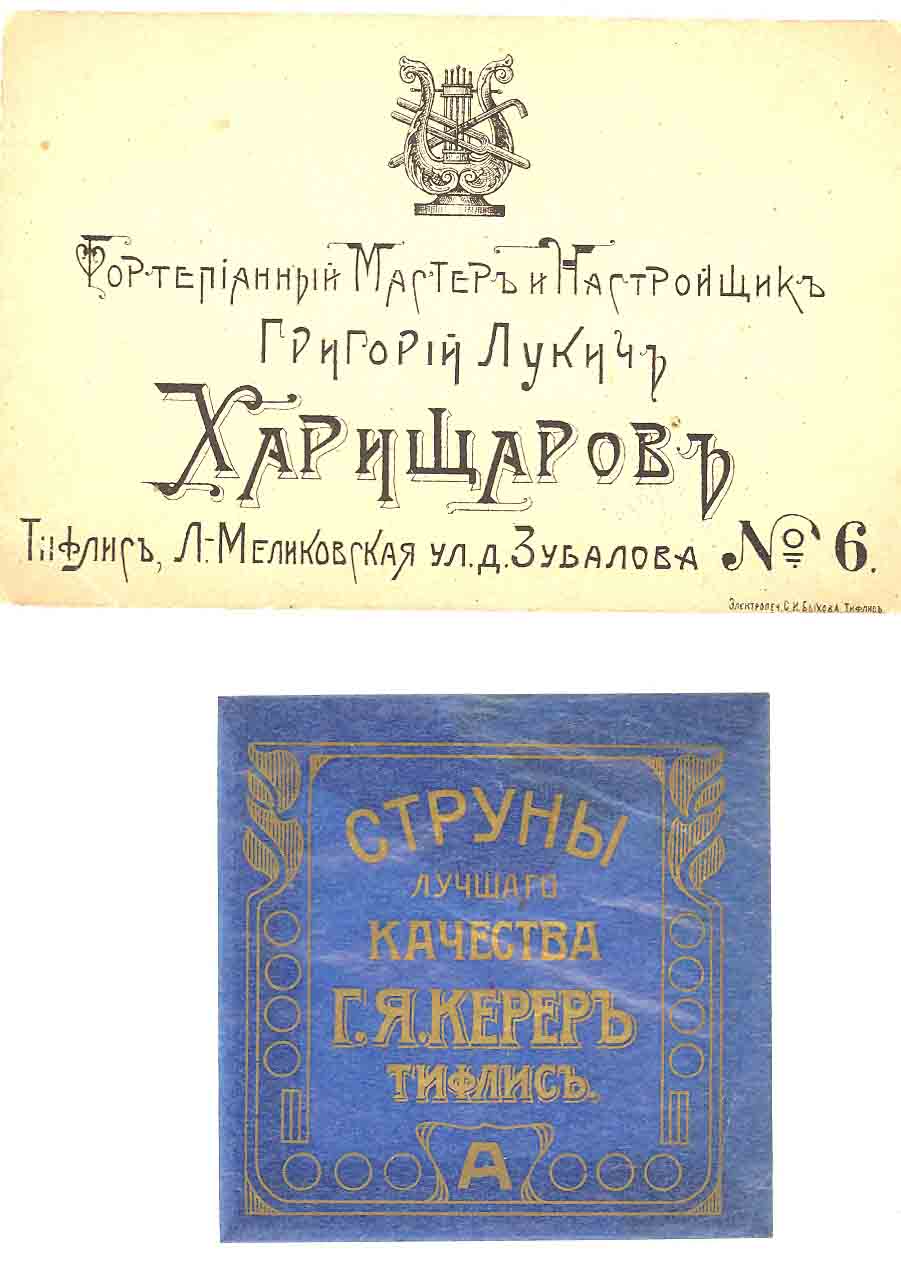 Фортепіанный Мастеръ и Настройщикъ
Григорій Лукичъ
Харищаровъ
Тифлисъ, Л.-Меликовская ул. д. Зубалова № 6.
Электропеч. С. И. Быхова. Тифлисъ.
СТРУНЫ
ЛУЧШАГО
КАЧЕСТВА
Г. Я. КЕРЕРЪ
ТИФЛИСЪ.
А